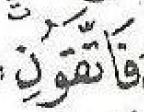 فَاتَّقُونِ